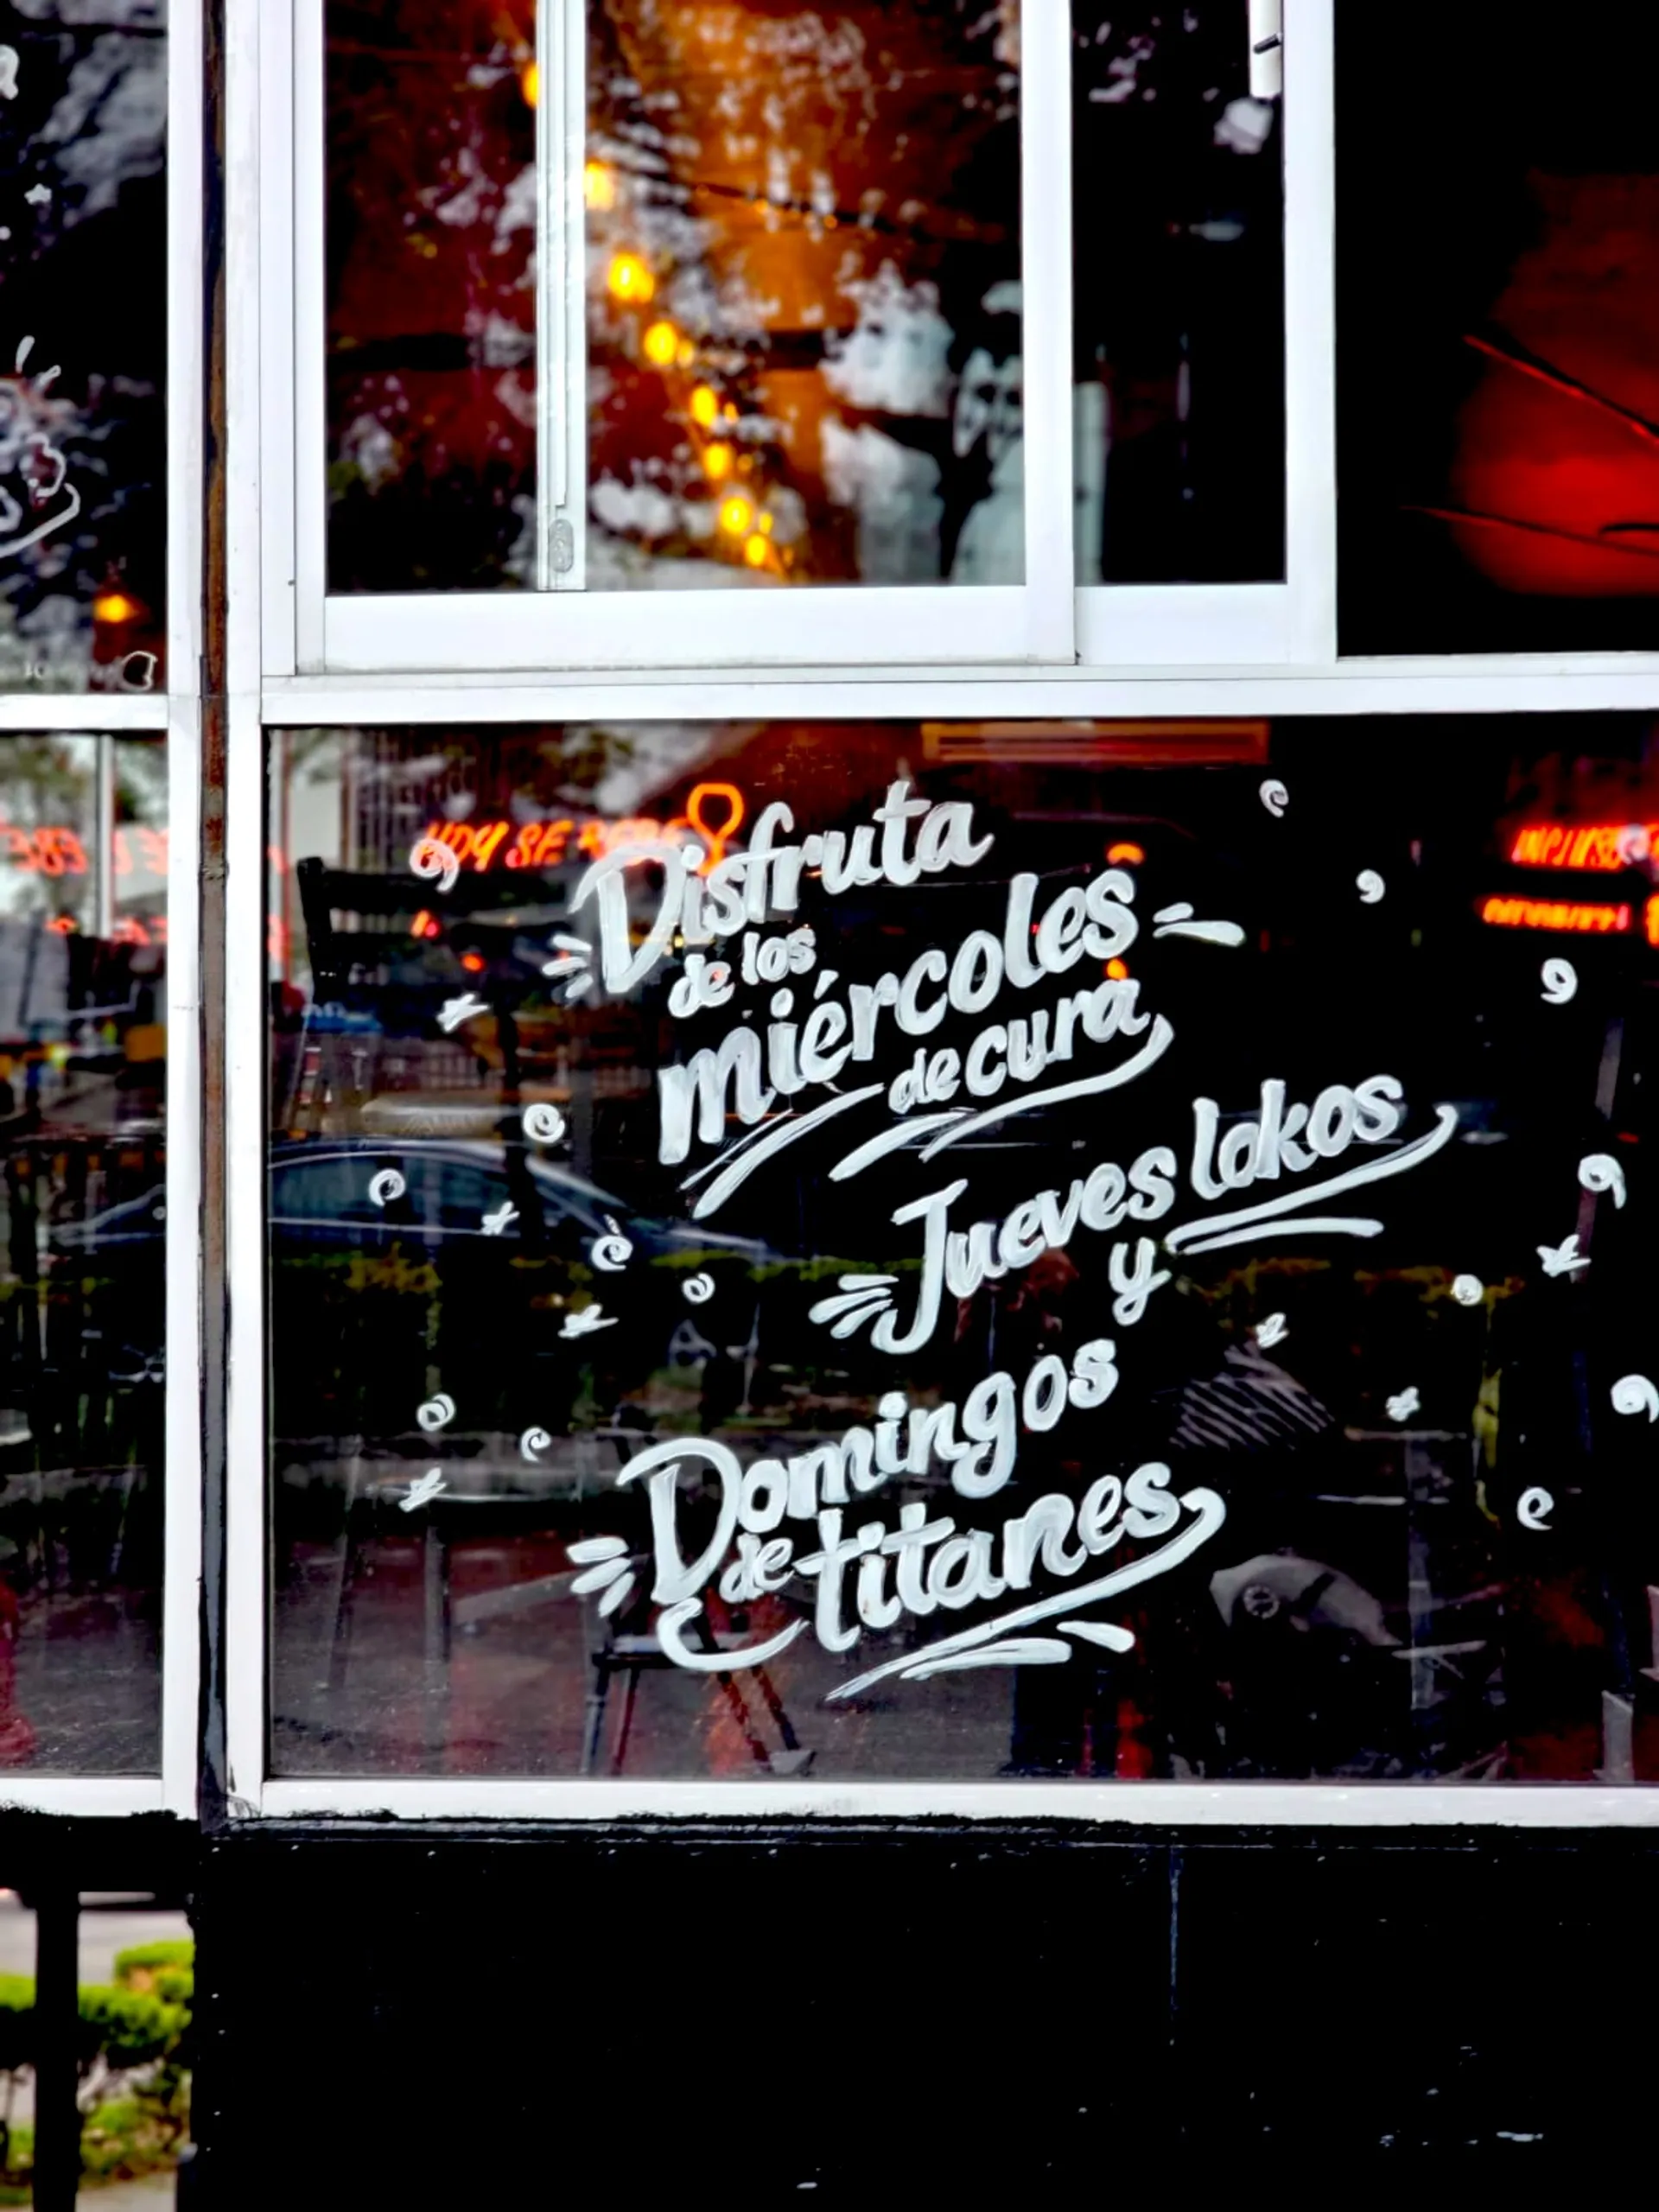 Disfruta
de los
miércoles
de cura
Jueves lokos
y
Domingos
de titanes
HOY SE BEBE